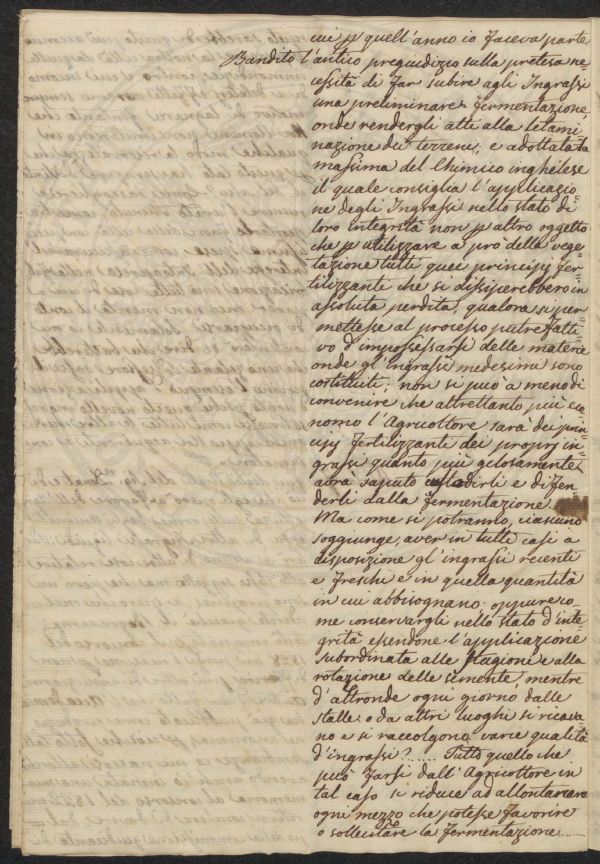 cui p quell'anno io faceva parte
Bandito l'antico pregiudizio sulla pretesa ne
cessità di far subire agli Ingrassi
una preliminare fermentazione
onde rendergli atti alla letami=
nazione dei terreni; e adottata la
massima del Chimico inghilese
il quale consiglia l'applicazio=
ne degli Ingrassi nello stato di
loro integrità non p altro oggetto
che p utilizzare a pro della vege=
tazione tutti quei principj fer=
tilizzanti che si dissiperebbero in
assoluta perdita, qualora si per=
mettesse al processo putrefatti=
vo d'impossessarsi delle materie
onde gl'ingrassi medesimi sono
costituiti; non si può a meno di
convenire che altrettanto più eco
nomo l'Agricoltore sarà dei prin=
cipj fertilizzanti dei proprj in=
grassi quanto più gelosamente
avrà saputo custodirli e difen
derli dalla fermentazione.
Ma come si potranno, ciascuno
soggiunge, aver in tutti casi a
disposizione gl'ingrassi recenti
e freschi e in quella quantità
in cui abbisognano; oppure co=
me conservargli nello stato d'inte=
grità essendone l'applicazione
subordinata alle stagioni e alla
rotazione delle semente, mentre
d'altronde ogni giorno dalle
stalle o da altri luoghi si ricava
no e si raccolgono varie qualità
d'ingrassi?...... Tutto quello che
può farsi dall'Agricoltore in
tal caso si riduce ad allontanare
ogni mezzo che potesse favorire
o sollecitare la fermentazione....